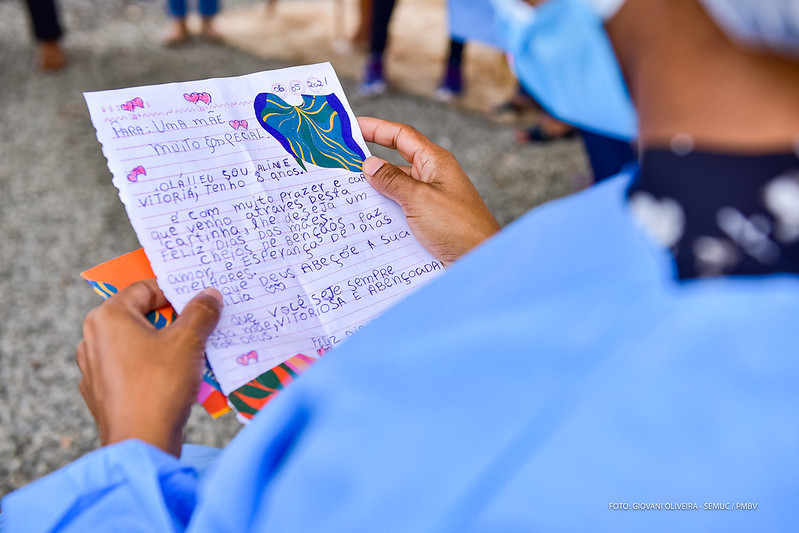 06 05 2021
PARA: UMA MÃE
MUITO ESPECIAL.
OLÁ!! EU SOU ALINE
VITORIA, TENHO 8 anos.
e com muito PRAZER e CAR
que venho ATRAVÉS DESTA
CARTINHA, lhe DESEJA UM
FELIZ DIAS DAS MÃES.
CHEIOS DE BENÇÃOS, PAZ
AMOR e ESPERANÇAS DE DIAS
MELHORES.
QUE DEUS ABEÇÕE A SUA
QUE VOCÊ SEJE SEMPRE
MÃE, VITORIOSA E ABENÇOADA
DEUS.
FELIZ
FOTO: GIOVANI OLIVEIRA - SEMUC / PMBV